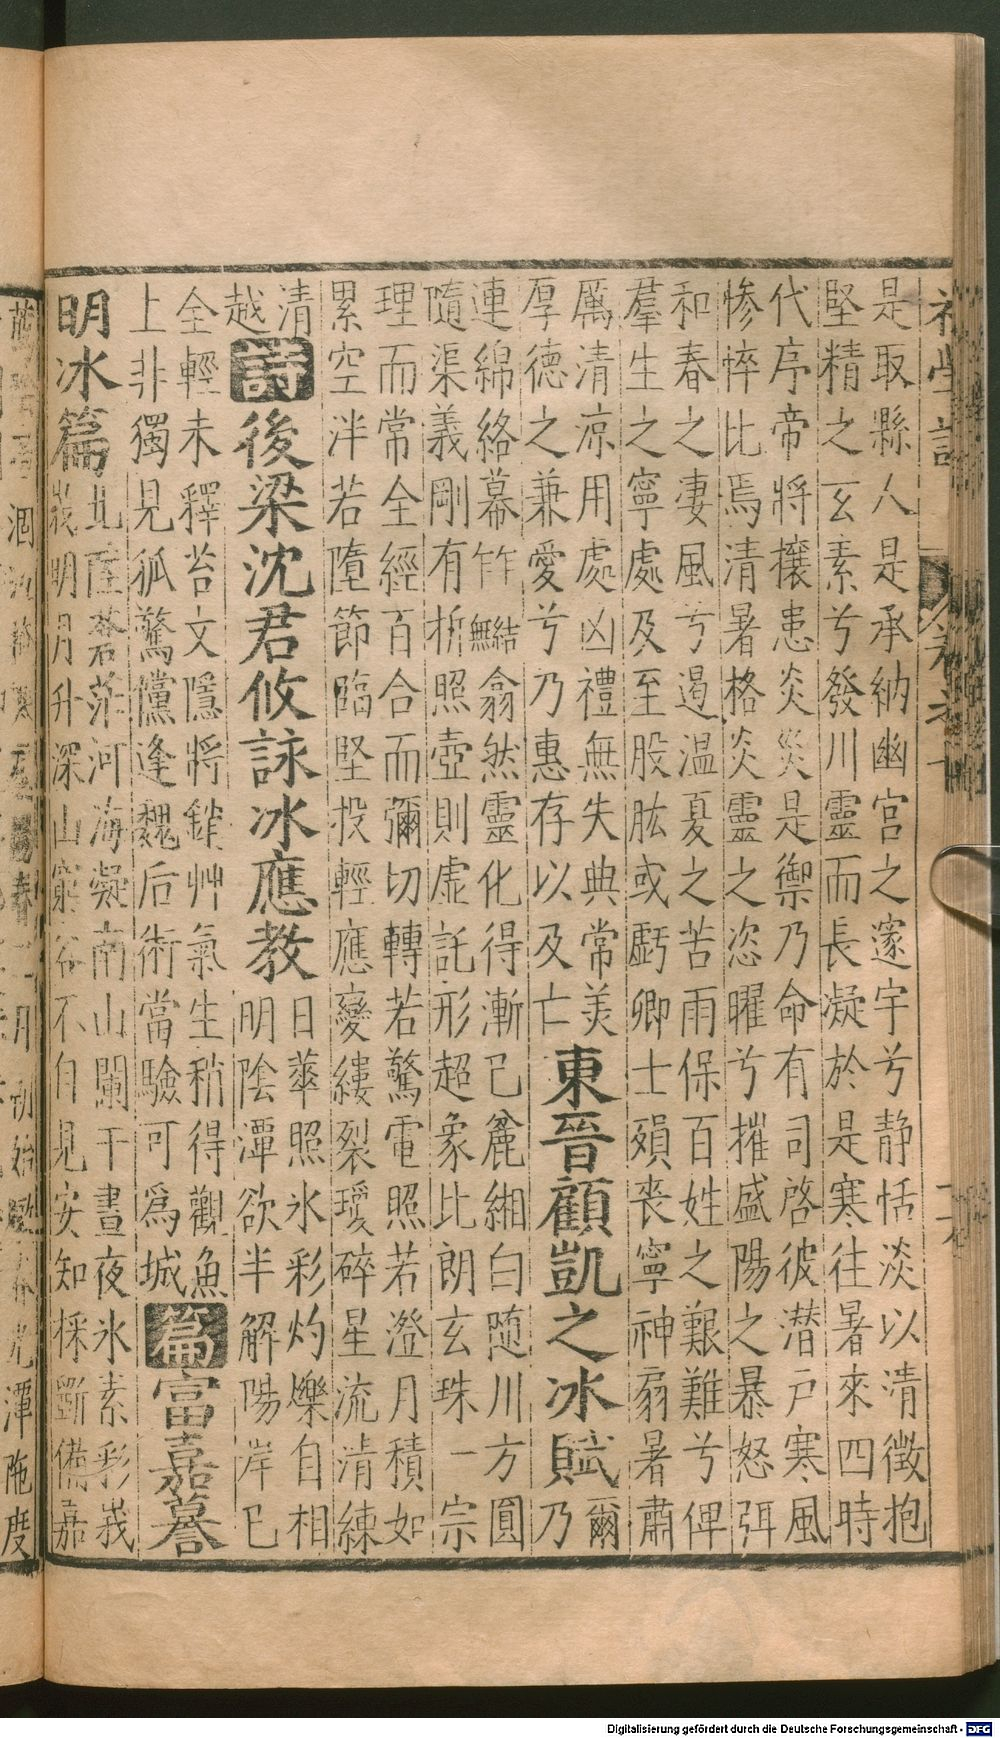 是取縣人是承納幽宫之邃宇兮静恬淡以清徴抱
堅精之玄素兮發川靈而長凝於是寒往暑來四時
代序帝將攘患炎災是禦乃命有司啓彼潜戸寒風
惨悴比焉清暑格炎靈之恣曜兮摧盛陽之暴怒弭
和春之凄風兮遏温夏之苦雨保百姓之艱難兮俾
羣生之寧處及至股肱或虧卿士殞丧寧神扇暑肅
厲清凉用處凶禮無失典常美
厚德之兼愛兮乃惠存以及亡
東晉顧凱之冰賦
爾
乃
連綿絡幕乍結無翕然靈化得漸已麄緗白随川方圓
隨渠義剛有折照壺則虚託形超象比朗玄珠一宗
理而常全經百合而彌切轉若驚電照若澄月積如
累空泮若墮節臨堅投輕應變縷裂瓊碎星流清練
清
越
詩
後梁沈君攸詠冰應教
日華照氷彩灼爍自相
明陰潭欲半解陽岸已
全輕未釋苔文隱將銷艸氣生稍得觀魚
上非獨見狐驚儻逢魏后術當驗可爲城
篇
富嘉謩
明冰篇
北陸蒼茫河海凝南山闌干晝夜氷素彩峩
峩明月升深山窮谷不自見安知採斲備嘉
Digitalisierung gefördert durch die Deutsche Forschungsgemeinschaft - DFG